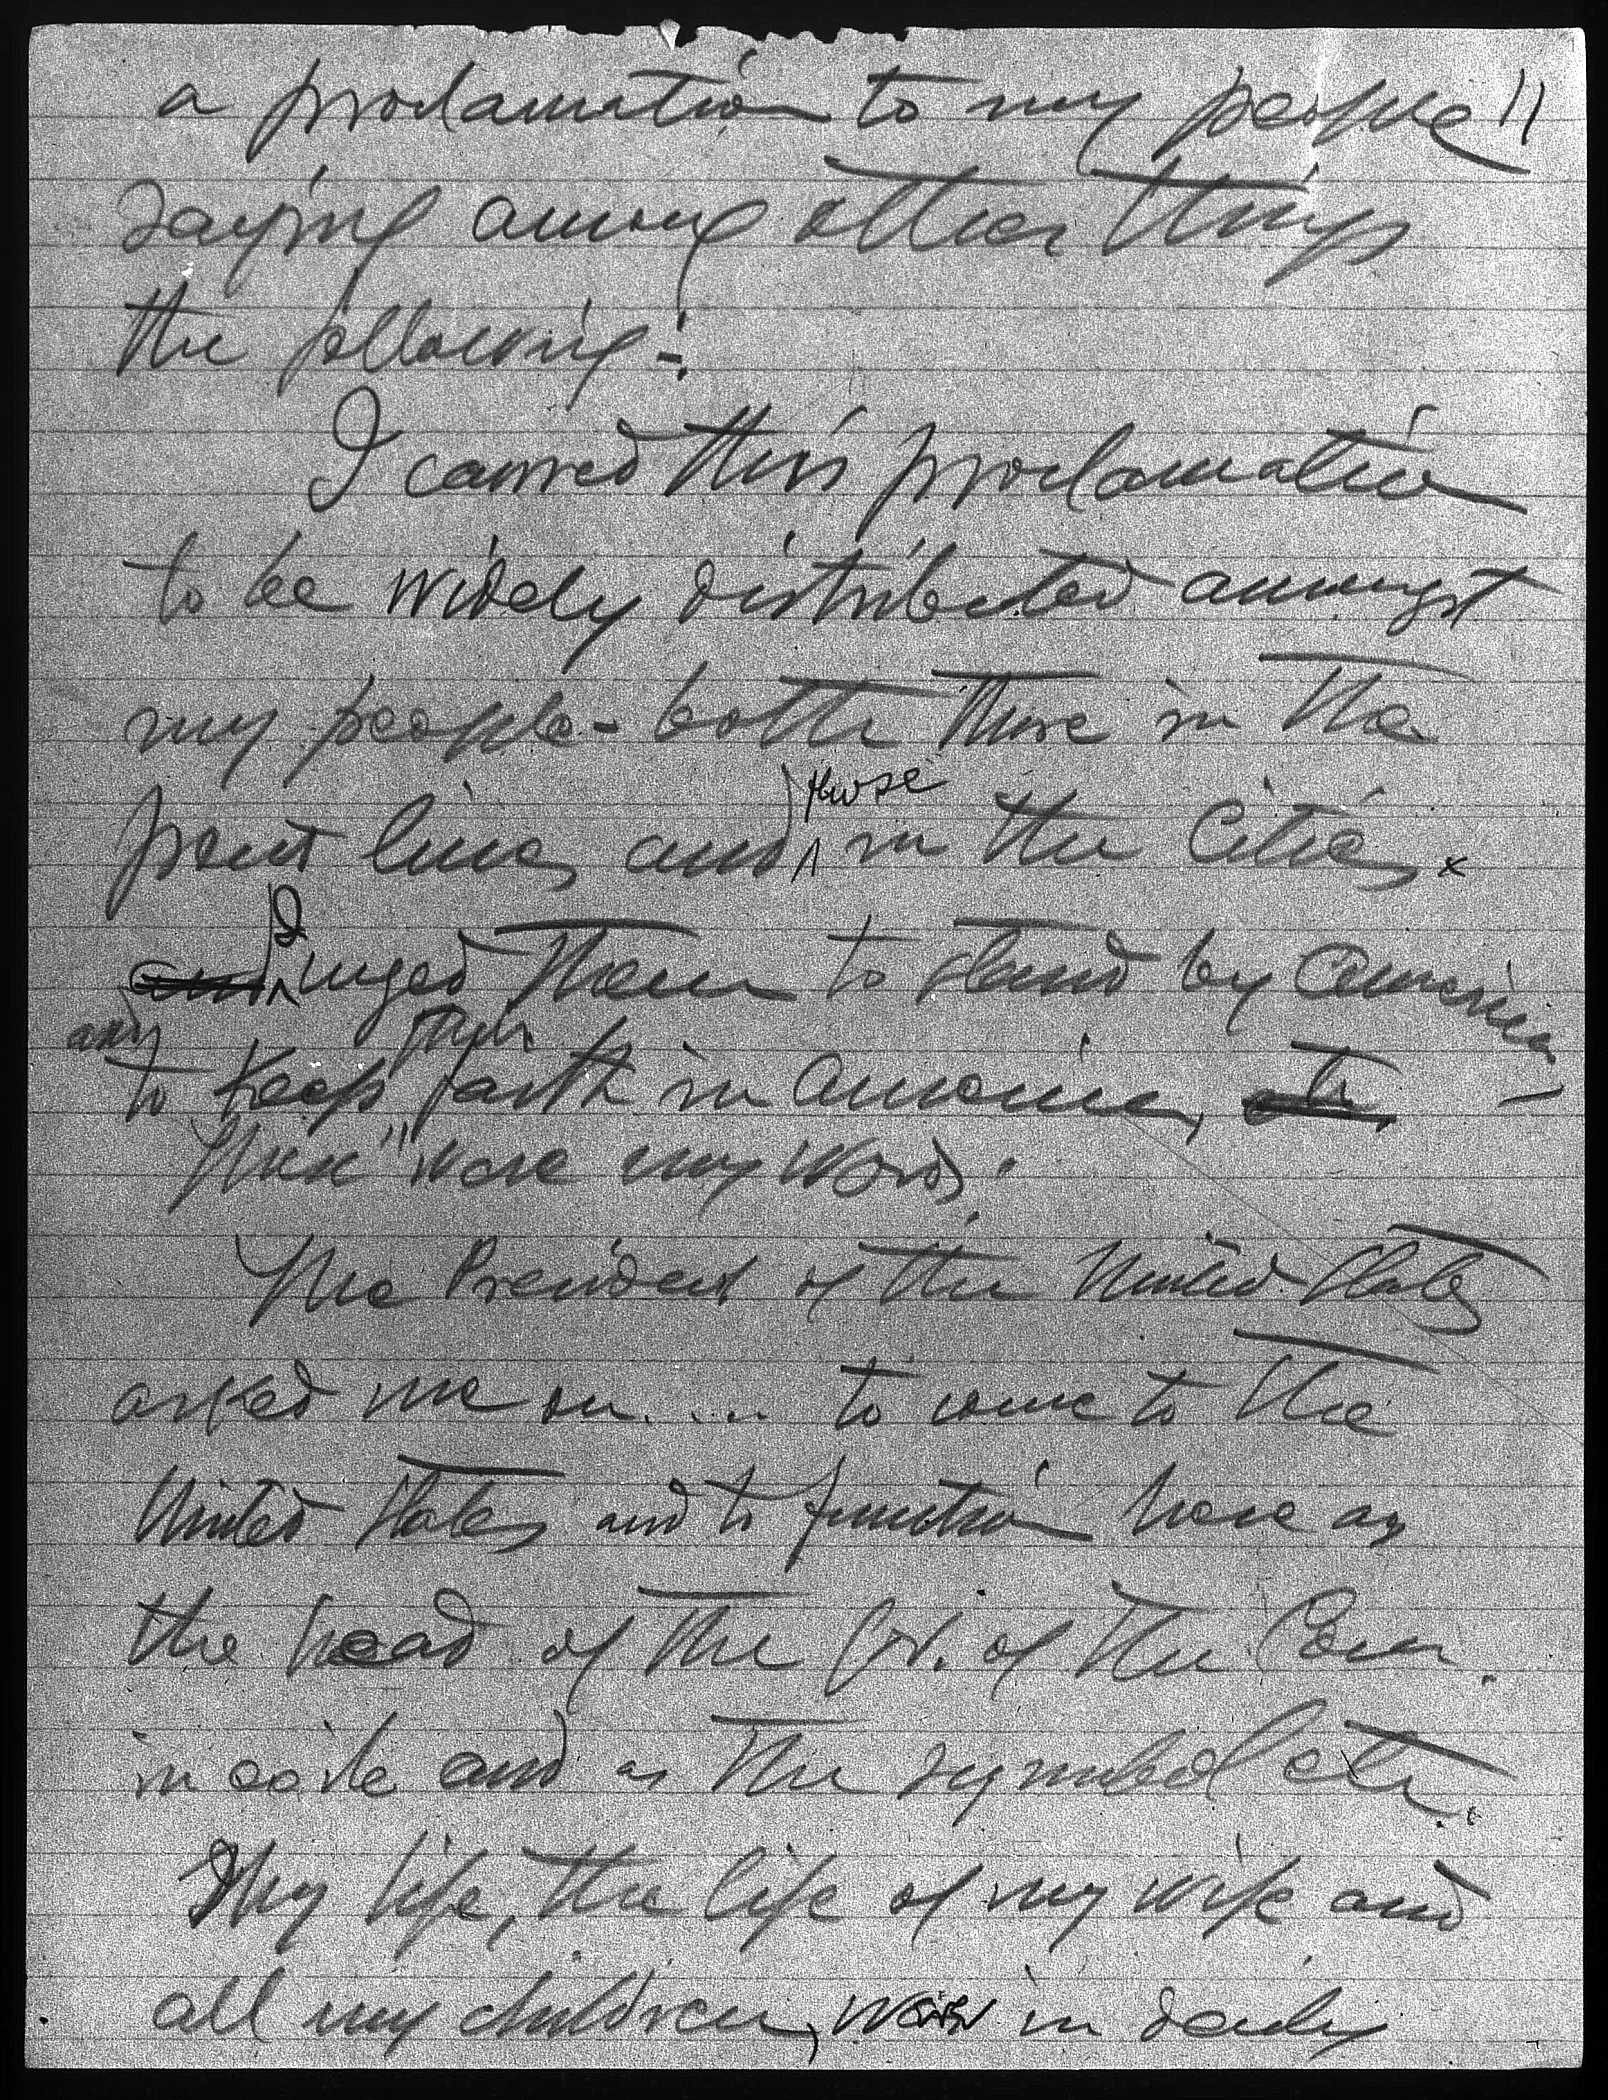 a proclamation to my people"
saying among other things
the following-:
I caused this proclamation
to be widely distributed amongst
my people - both those in the
front lines and those in the Cities.
and I urged them to stand by America
and to keep their faith in America,
"These" were my words.
The President of the United States
asked me on..... to come to the
United States and to function here as
the head of the Gov. of the Com.
in exile and as the symbol etc.
My life, the life of my wife and
all my children, were in daily